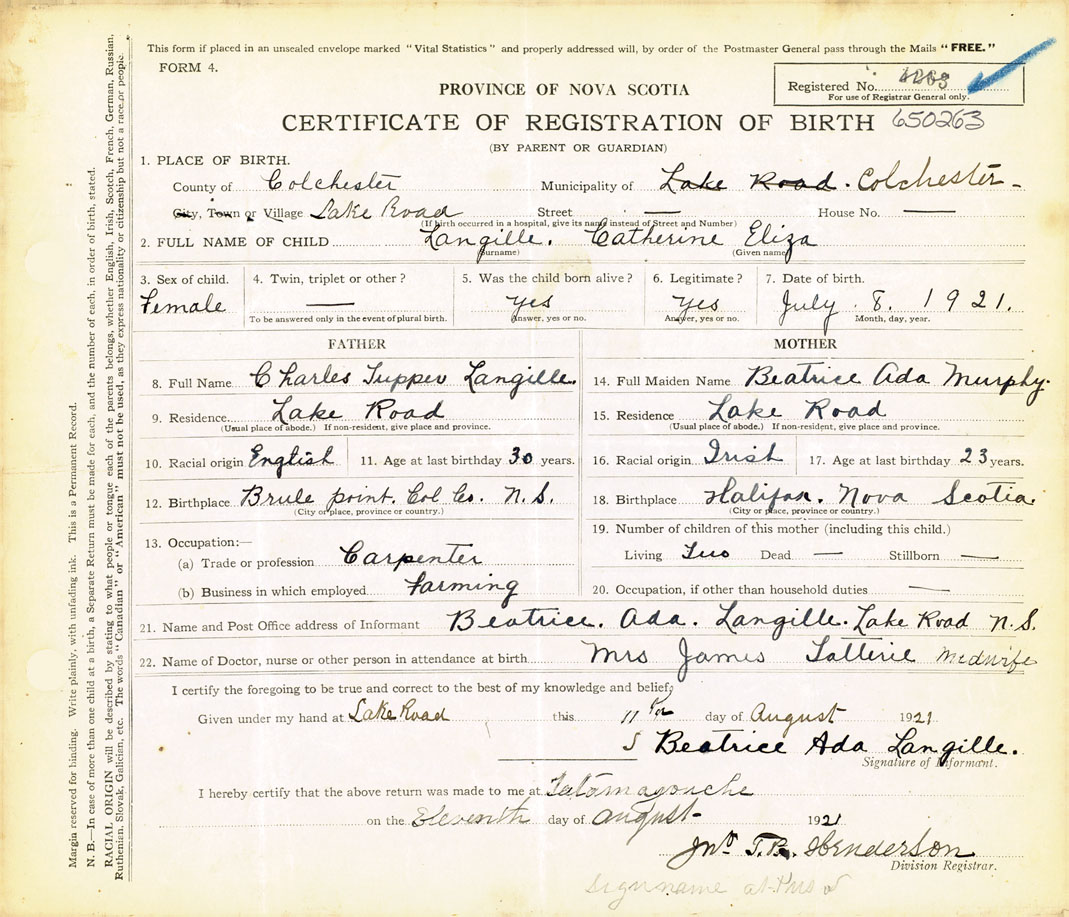 This form if placed in an unsealed envelope marked "Vital Statistics" and properly addressed will, by order of the Postmaster General pass through the Mails "FREE."
FORM 4.
Registered No. 4263
For use of Registrar General only.
PROVINCE OF NOVA SCOTIA
CERTIFICATE OF REGISTRATION OF BIRTH 650263
(BY PARENT OR GUARDIAN)
1. PLACE OF BIRTH.
County of Colchester Municipality of Lake Road. Colchester
City, Town or Village Lake Road Street — House No. —
(If birth occurred in a hospital, give its name instead of Street and Number)
2. FULL NAME OF CHILD Langille. Catherine Eliza
(Surname) (Given name)
3. Sex of child. 4. Twin, triplet or other? 5. Was the child born alive? 6. Legitimate? 7. Date of birth.
Female — yes yes July 8. 1921.
To be answered only in the event of plural birth. Answer, yes or no. Answer, yes or no. Month, day, year.
FATHER
8. Full Name Charles Tupper Langille.
9. Residence. Lake Road
(Usual place of abode.) If non-resident, give place and province.
10. Racial origin English 11. Age at last birthday 30 years.
12. Birthplace Brule point. Col Co. N.S.
(City or place, province or country.)
13. Occupation:—
(a) Trade or profession Carpenter
(b) Business in which employed Farming
MOTHER
14. Full Maiden Name Beatrice Ada Murphy.
15. Residence Lake Road
(Usual place of abode.) If non-resident, give place and province.
16. Racial origin Irish 17. Age at last birthday 23 years.
18. Birthplace Halifax. Nova Scotia.
(City or place, province or country.)
19. Number of children of this mother (including this child.)
Living Two Dead — Stillborn —
20. Occupation, if other than household duties —
21. Name and Post Office address of Informant Beatrice. Ada. Langille. Lake Road N.S.
22. Name of Doctor, nurse or other person in attendance at birth Mrs James Tatterie Medwife
I certify the foregoing to be true and correct to the best of my knowledge and belief,
Given under my hand at Lake Road this 11th day of August 1921
Beatrice Ada Langille.
Signature of Informant.
I hereby certify that the above return was made to me at Tatamagouche
on the Eleventh day of August 1921
Jno T.B. Henderson
Division Registrar.
Sign name at
Margin reserved for binding. Write plainly, with unfading ink. This is a Permanent Record.
N. B.—In case of more than one child at a birth, a Separate Return must be made for each, and the number of each, in order of birth, stated.
RACIAL ORIGIN will be described by stating to what people or tongue each of the parents belongs, whether English, Irish, Scotch, French, German, Russian,
Ruthenian, Slovak, Galician, etc. The words "Canadian" or "American" must not be used, as they express nationality or citizenship but not a race or people